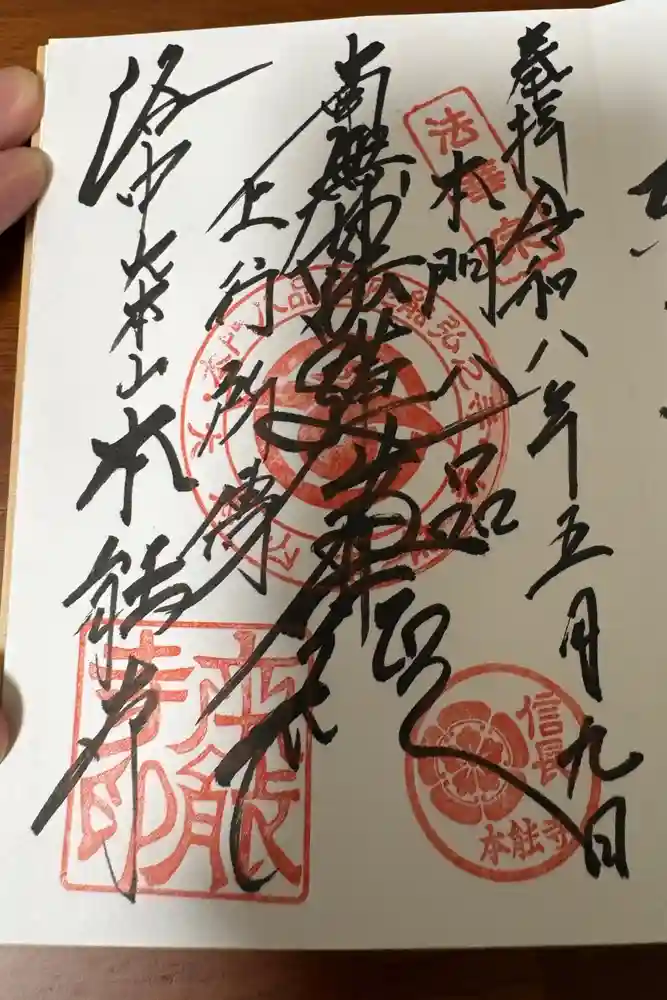 奉拝 令和八年五月九日
法華宗
本門八品
南無妙法蓮華経
上行所傳
洛中大本山本能寺
信長
本能寺
本能寺印